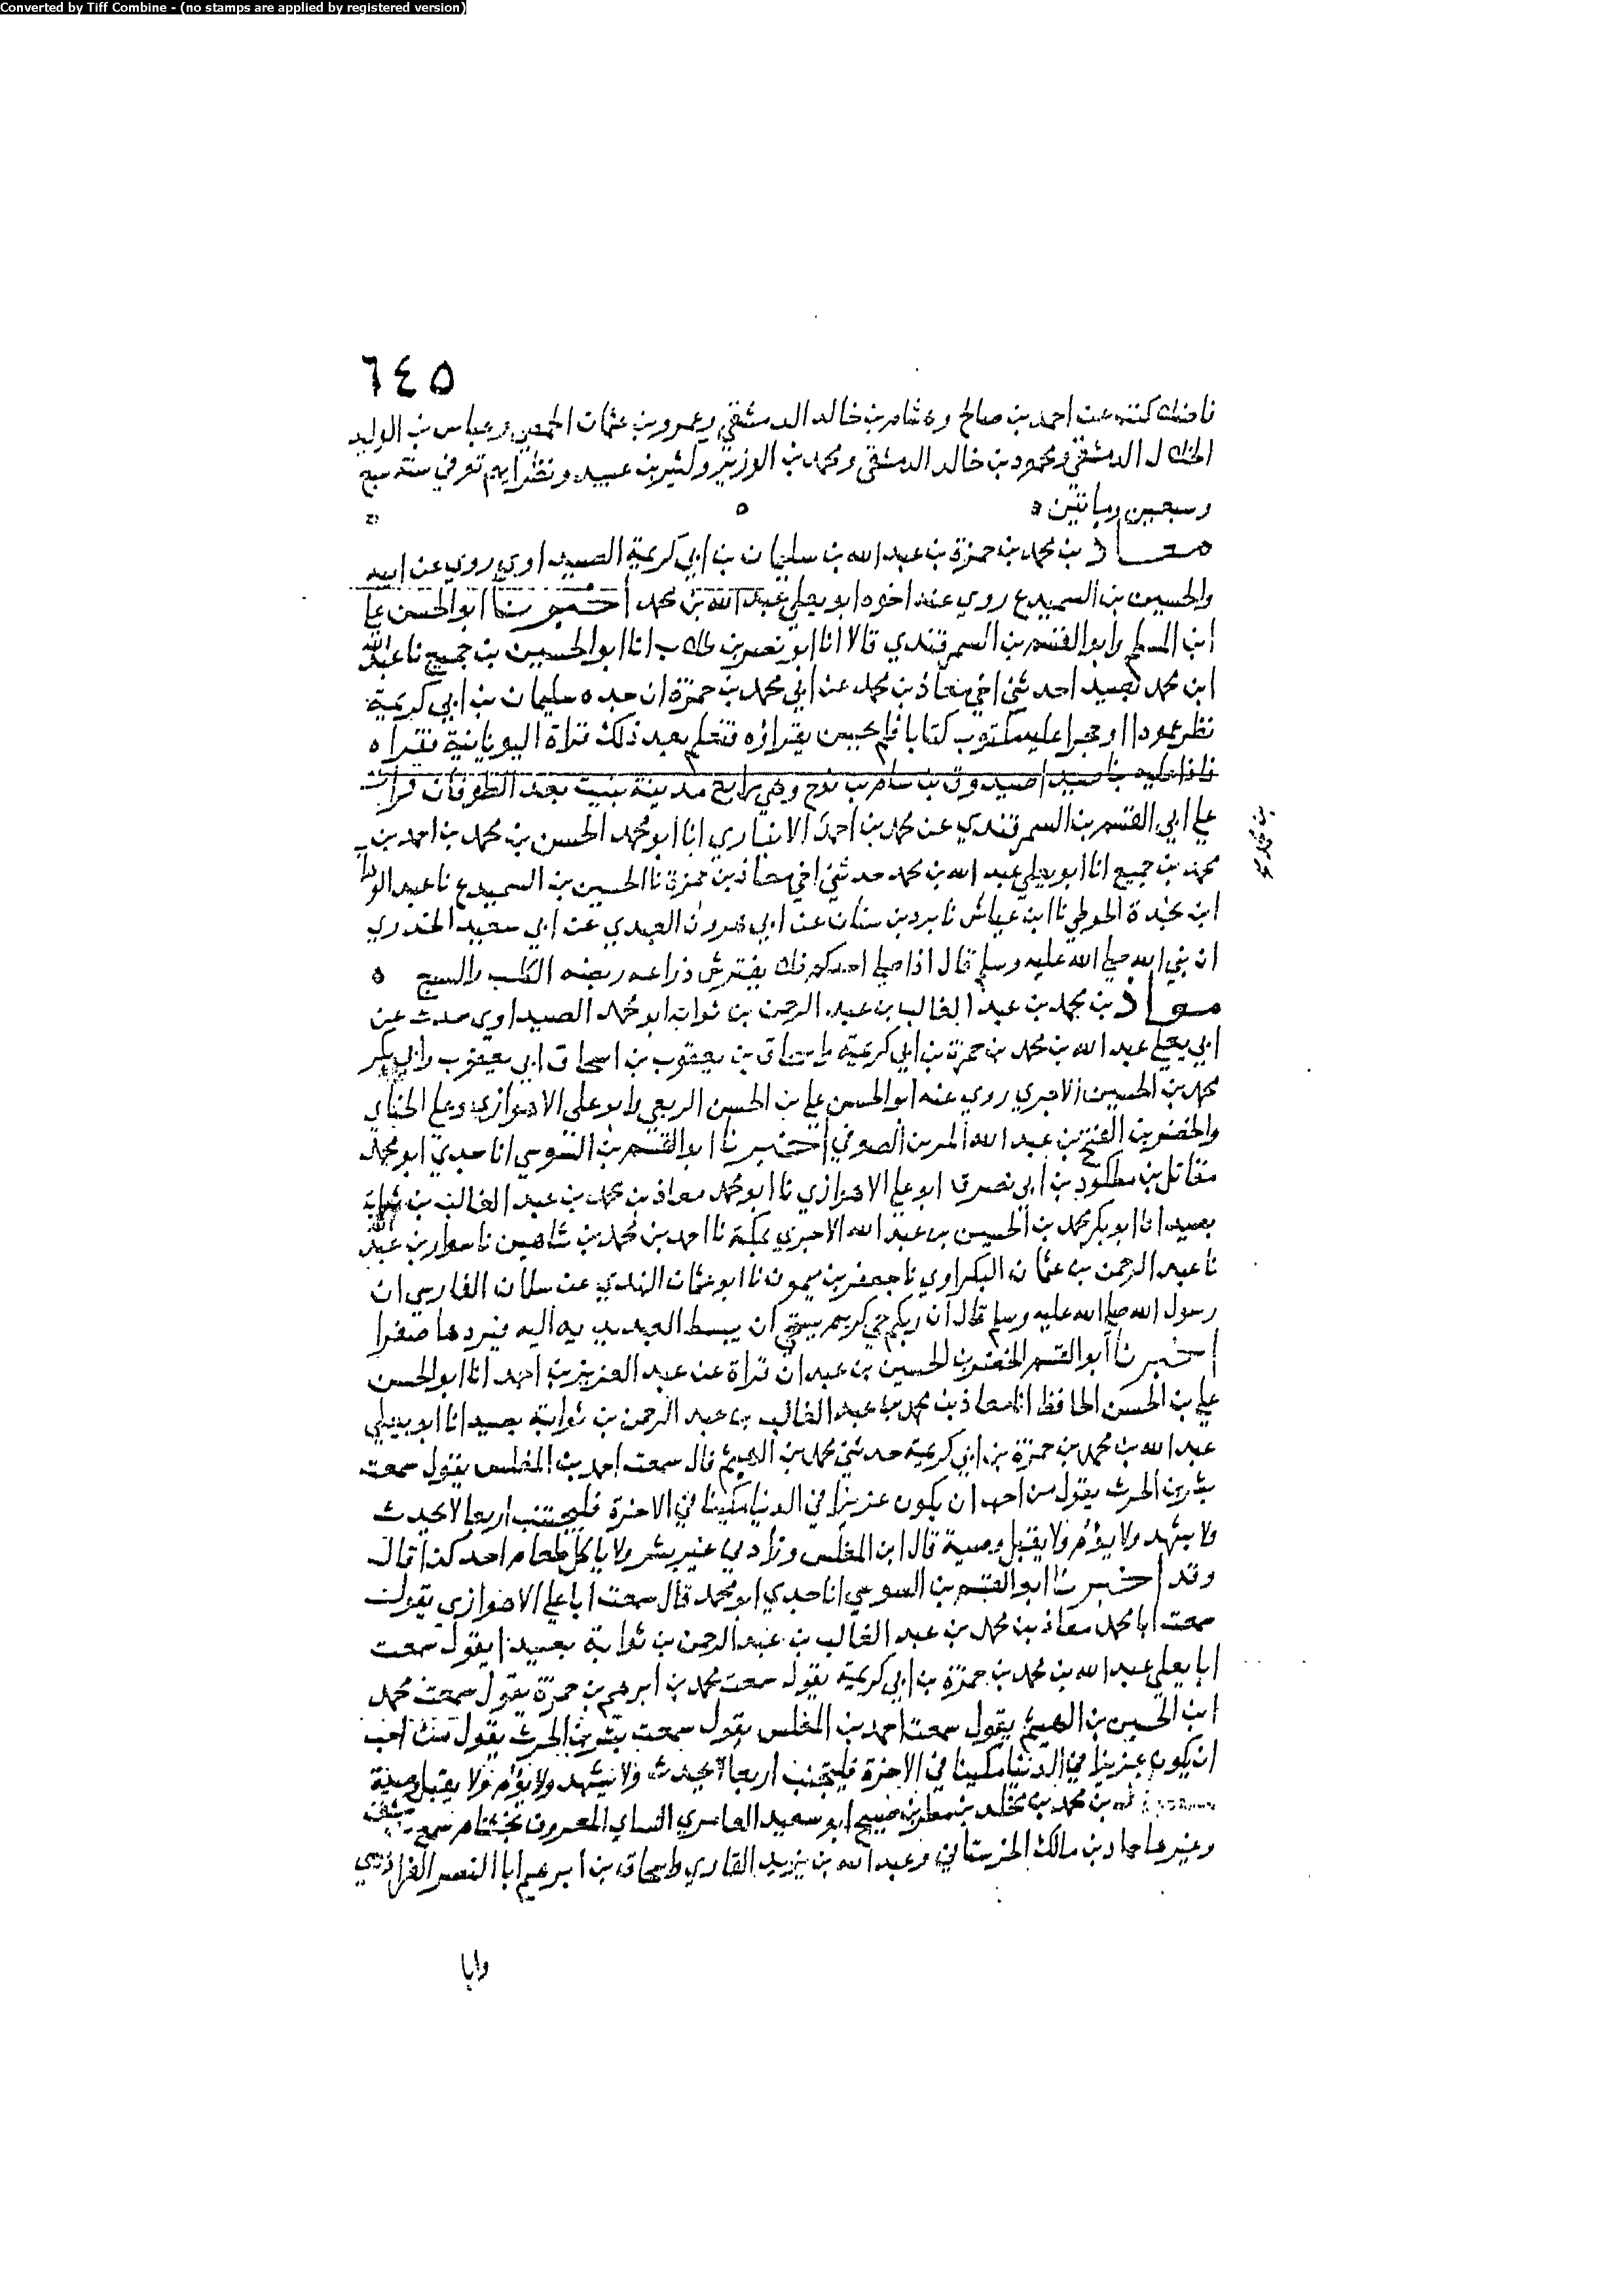 Converted by Tiff Combine - (no stamps are applied by registered version)
٦٤٥
عن احمد بن صالح وهشام بن خالد الدمشقي وعمرو بن عثمان الحمصي وعباس بن الوليد
الخلال الدمشقي ومحمود بن خالد الدمشقي ومحمد بن الوزير وكثير بن عبيد ونظرايهم توفي سنة سبع
وسبعين وماتين ه
معاذ بن محمد بن حمزة بن عبد الله بن سليمان بن ابي كريمة الصيداوي روي عن ابيه
والحسين بن السميدع روي عنه اخوه ابو يعلي عبد الله بن محمد اخبرنا ابو الحسن علي
ابن المسلم وابو القسم بن السمرقندي قالا انا ابو نصر بن طلاب انا ابو الحسين بن جميع نا عبد الله
ابن محمد بصيدا حدثني اخي معاذ بن محمد عن ابي محمد بن حمزة ان جده سليمان بن ابي كريمة
نظر عمودا او حجرا عليه مكتوب كتابا فلم يحسن يقراؤه فتعلم بعد ذلك قراة اليونانية فقراه
فاذا عليه بنا صيدا صيدون بن سام بن نوح وهي رابع مدينة بنيت بعد الطوفان قرات
علي ابي القسم بن السمرقندي عن محمد بن احمد الانباري انا ابو محمد الحسن بن محمد بن احمد بن
محمد بن جميع انا ابو يعلي عبد الله بن محمد حدثني اخي معاذ بن حمزة نا الحسين بن السميدع نا عبد الوهاب
ابن نجدة الحوطي نا ابن عياش نا برد بن سنان عن ابي هرون العبدي عن ابي سعيد الخدري
ان نبي الله صلي الله عليه وسلم قال اذا صلي احدكم فلا يفترش ذراعه ربضه الكلب والسبع ه
معاذ بن محمد بن عبد الغالب بن عبد الرحمن بن ثوابه ابو محمد الصيداوي حدث عن
ابي يعلي عبد الله بن محمد بن حمزة بن ابي كريمة واسحاق بن يعقوب بن اسحاق ابي يعقوب وابي بكر
محمد بن الحسين الاجري روي عنه ابو الحسن علي بن الحسن الربعي وابو علي الاهوازي وعلي الحنائي
والخضر بن الفتح بن عبد الله المزين الصوفي اخبرنا ابو القسم بن السوسي انا جدي ابو محمد
مقاتل بن مطكود بن ابي نصر نا ابو علي الاهوازي نا ابو محمد معاذ بن محمد بن عبد الغالب بن ثوابة
بصيدا نا ابو بكر محمد بن الحسين بن عبد الله الاجري بمكة نا احمد بن محمد بن شاهين نا سوار بن عبد الله
نا عبد الرحمن بن عثمان البكراوي نا جعفر بن ميمون نا ابو عثمان النهدي عن سلمان الفارسي ان
رسول الله صلي الله عليه وسلم قال ان ربكم حي كريم يستحي ان يبسط العبد يديه اليه فيردهما صفرا
اخبرنا ابو القسم الخضر بن الحسين بن عبدان قراة عن عبد العزيز بن احمد انا ابو الحسن
علي بن الحسن الحافظ انا معاذ بن محمد بن عبد الغالب بن عبد الرحمن بن ثوابة بصيدا انا ابو يعلي
عبد الله بن محمد بن حمزة بن ابي كريمة حدثني محمد بن الهيثم قال سمعت احمد بن المغلس يقول سمعت
بشر بن الحرث يقول من احب ان يكون عزيزا في الدنيا مكينا في الاخرة فليجتنب اربعا لا يحدث
ولا يشهد ولا يؤم ولا يقبل وصية قال ابن المغلس وزادني غير بشر ولا ياكل طعام احد كذا قال
وقد اخبرنا ابو القسم بن السوسي انا جدي ابو محمد قال سمعت ابا علي الاهوازي يقول
سمعت ابا محمد معاذ بن محمد بن عبد الغالب بن عبد الرحمن بن ثوابة بصيدا يقول سمعت
ابا يعلي عبد الله بن محمد بن حمزة بن ابي كريمة يقول سمعت محمد بن ابرهيم بن حمزة يقول سمعت محمد
ابن الحسين بن الهيثم يقول سمعت احمد بن المغلس يقول سمعت بشر بن الحرث يقول من احب
ان يكون عزيزا في الدنيا مكينا في الاخرة فليجتنب اربعا لا يحدث ولا يشهد ولا يؤم ولا يقبل وصية
بن محمد بن مخلد بن مطر بن صبيح ابو سعيد العامري النساي المعروف بخشنام سمع بدمشق
وغيرها حماد بن مالك الحرستاني وعبد الله بن يزيد القاري واسحاق بن ابرهيم ابا النصر الفراديسي
وابا